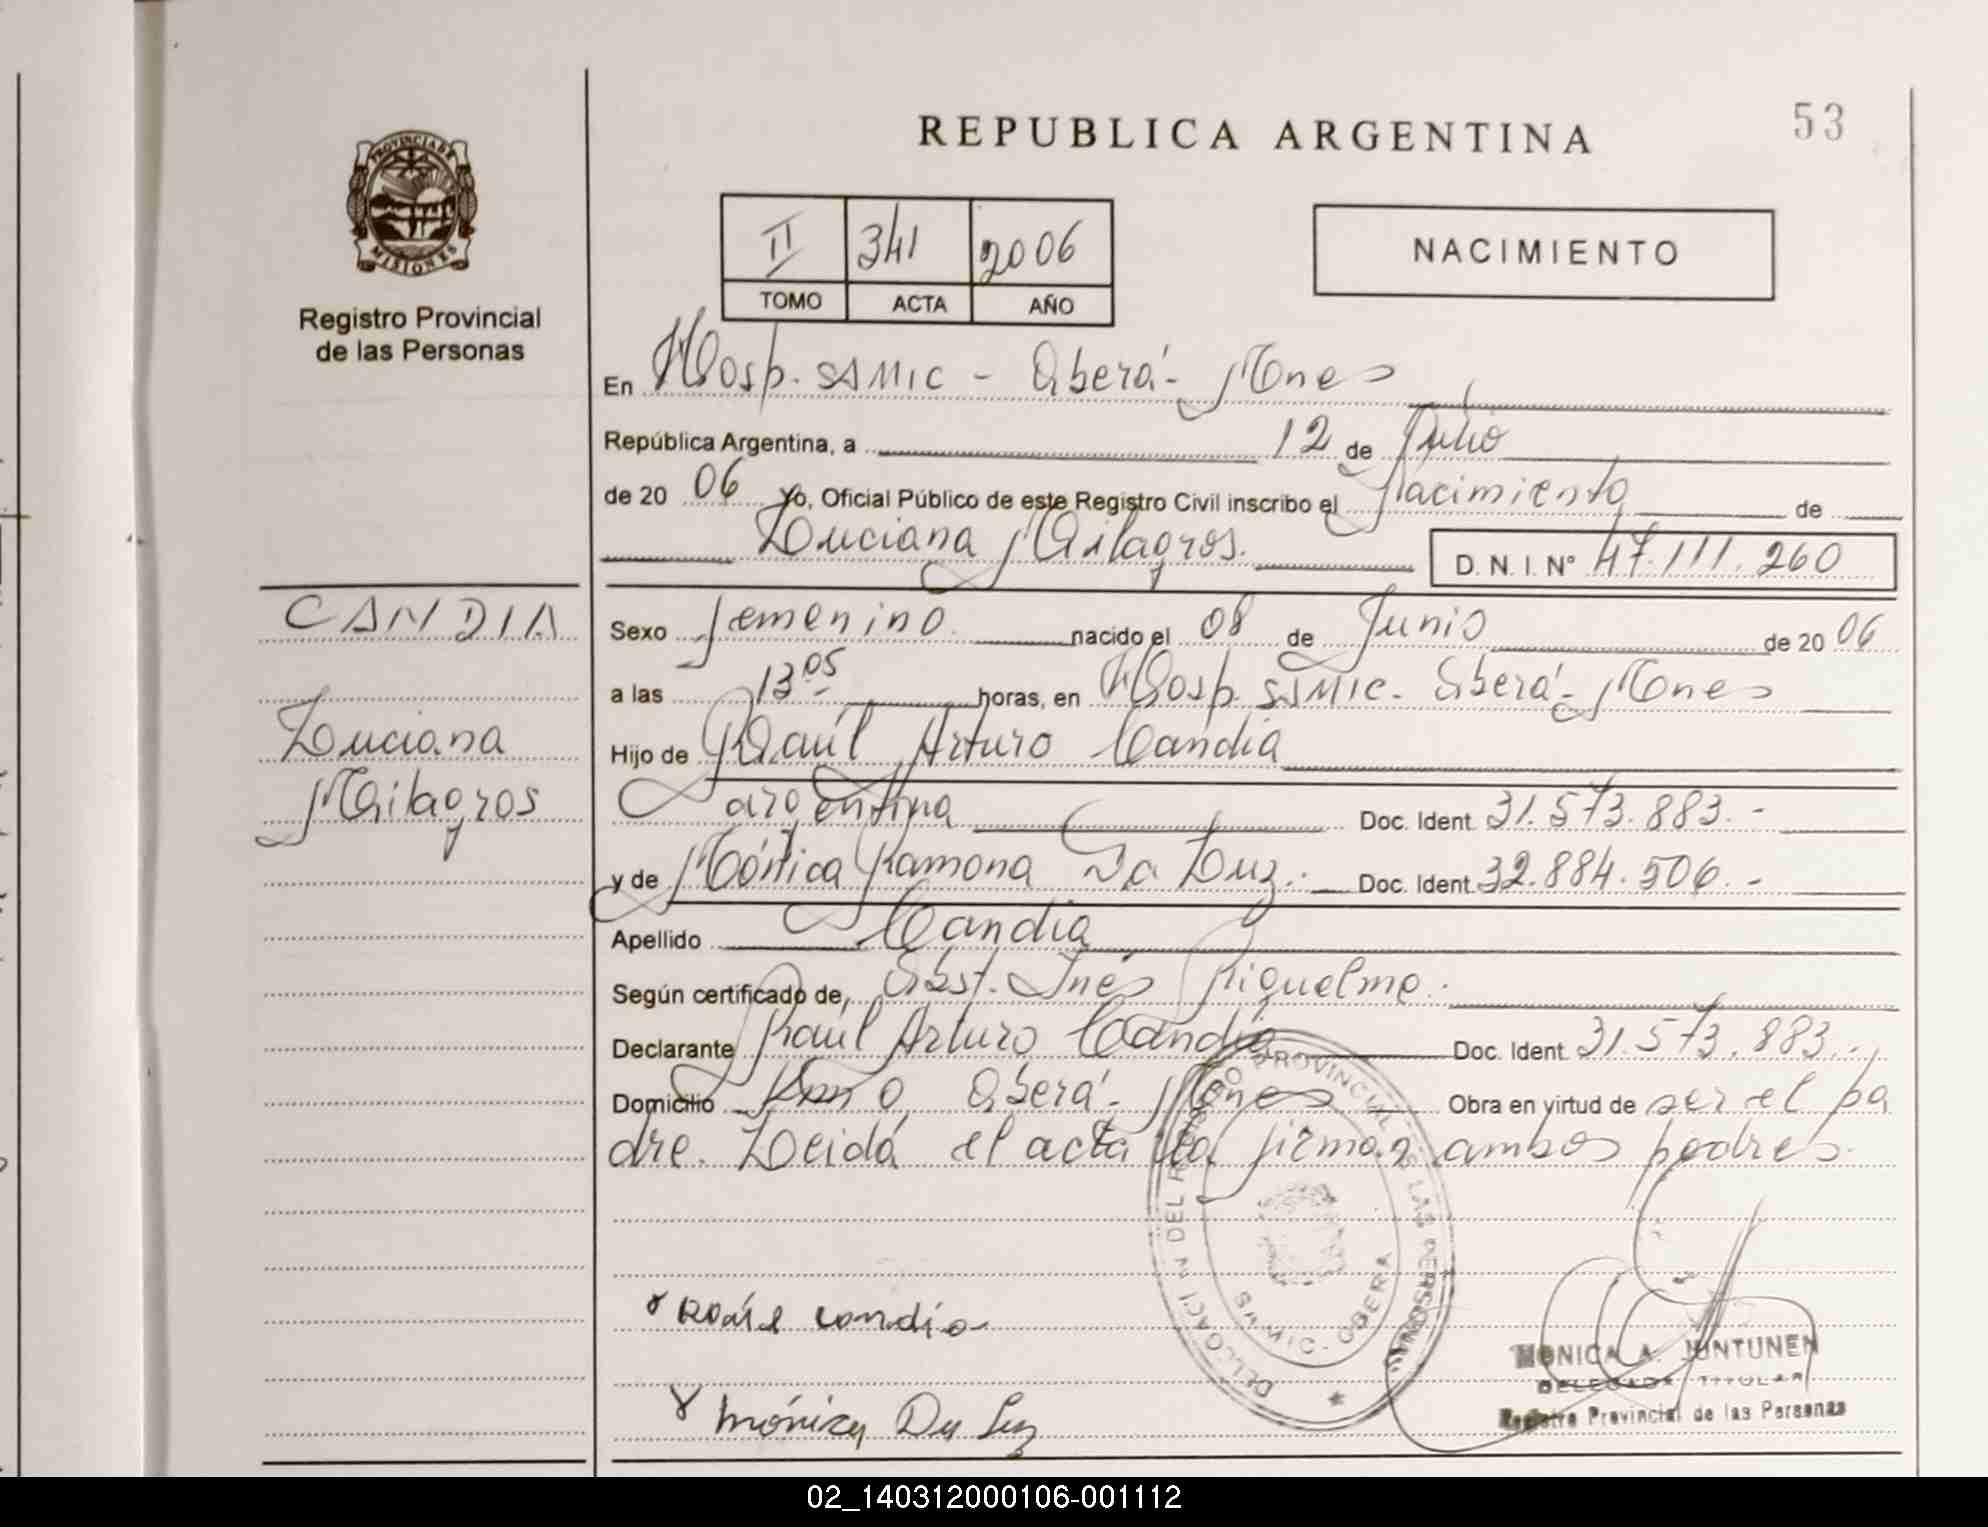 53
REPUBLICA ARGENTINA
PROVINCIA DE
MISIONES
Registro Provincial
de las Personas
II 341 2006
TOMO ACTA AÑO
NACIMIENTO
En Hosp. SAMIC - Oberá - Mnes
República Argentina, a 12 de Julio
de 20 06 Yo, Oficial Público de este Registro Civil inscribo el Nacimiento de
Luciana Milagros. D. N. I. Nº 47.111.260
CANDIA
Luciana
Milagros
Sexo femenino nacido el 08 de Junio de 20 06
a las 13 05 horas, en Hosp. SAMIC - Oberá - Mnes
Hijo de Raúl Arturo Candia
argentina Doc. Ident. 31.573.883.-
y de Mónica Ramona Da Luz.- Doc. Ident. 32.884.506.-
Apellido Candia
Según certificado de, Obst. Inés Riquelme.
Declarante Raúl Arturo Candia Doc. Ident. 31.573.883.-
Domicilio Oberá - Mnes Obra en virtud de ser el pa
dre. Leida el acta la firman ambos padres.
Raúl Candia
Mónica Da Luz
DELEGACION DEL REGISTRO PROVINCIAL DE LAS PERSONAS
OBERA
MONICA A. JUNTUNEN
DELEGADA TITULAR
Registro Provincial de las Personas
02_140312000106-001112